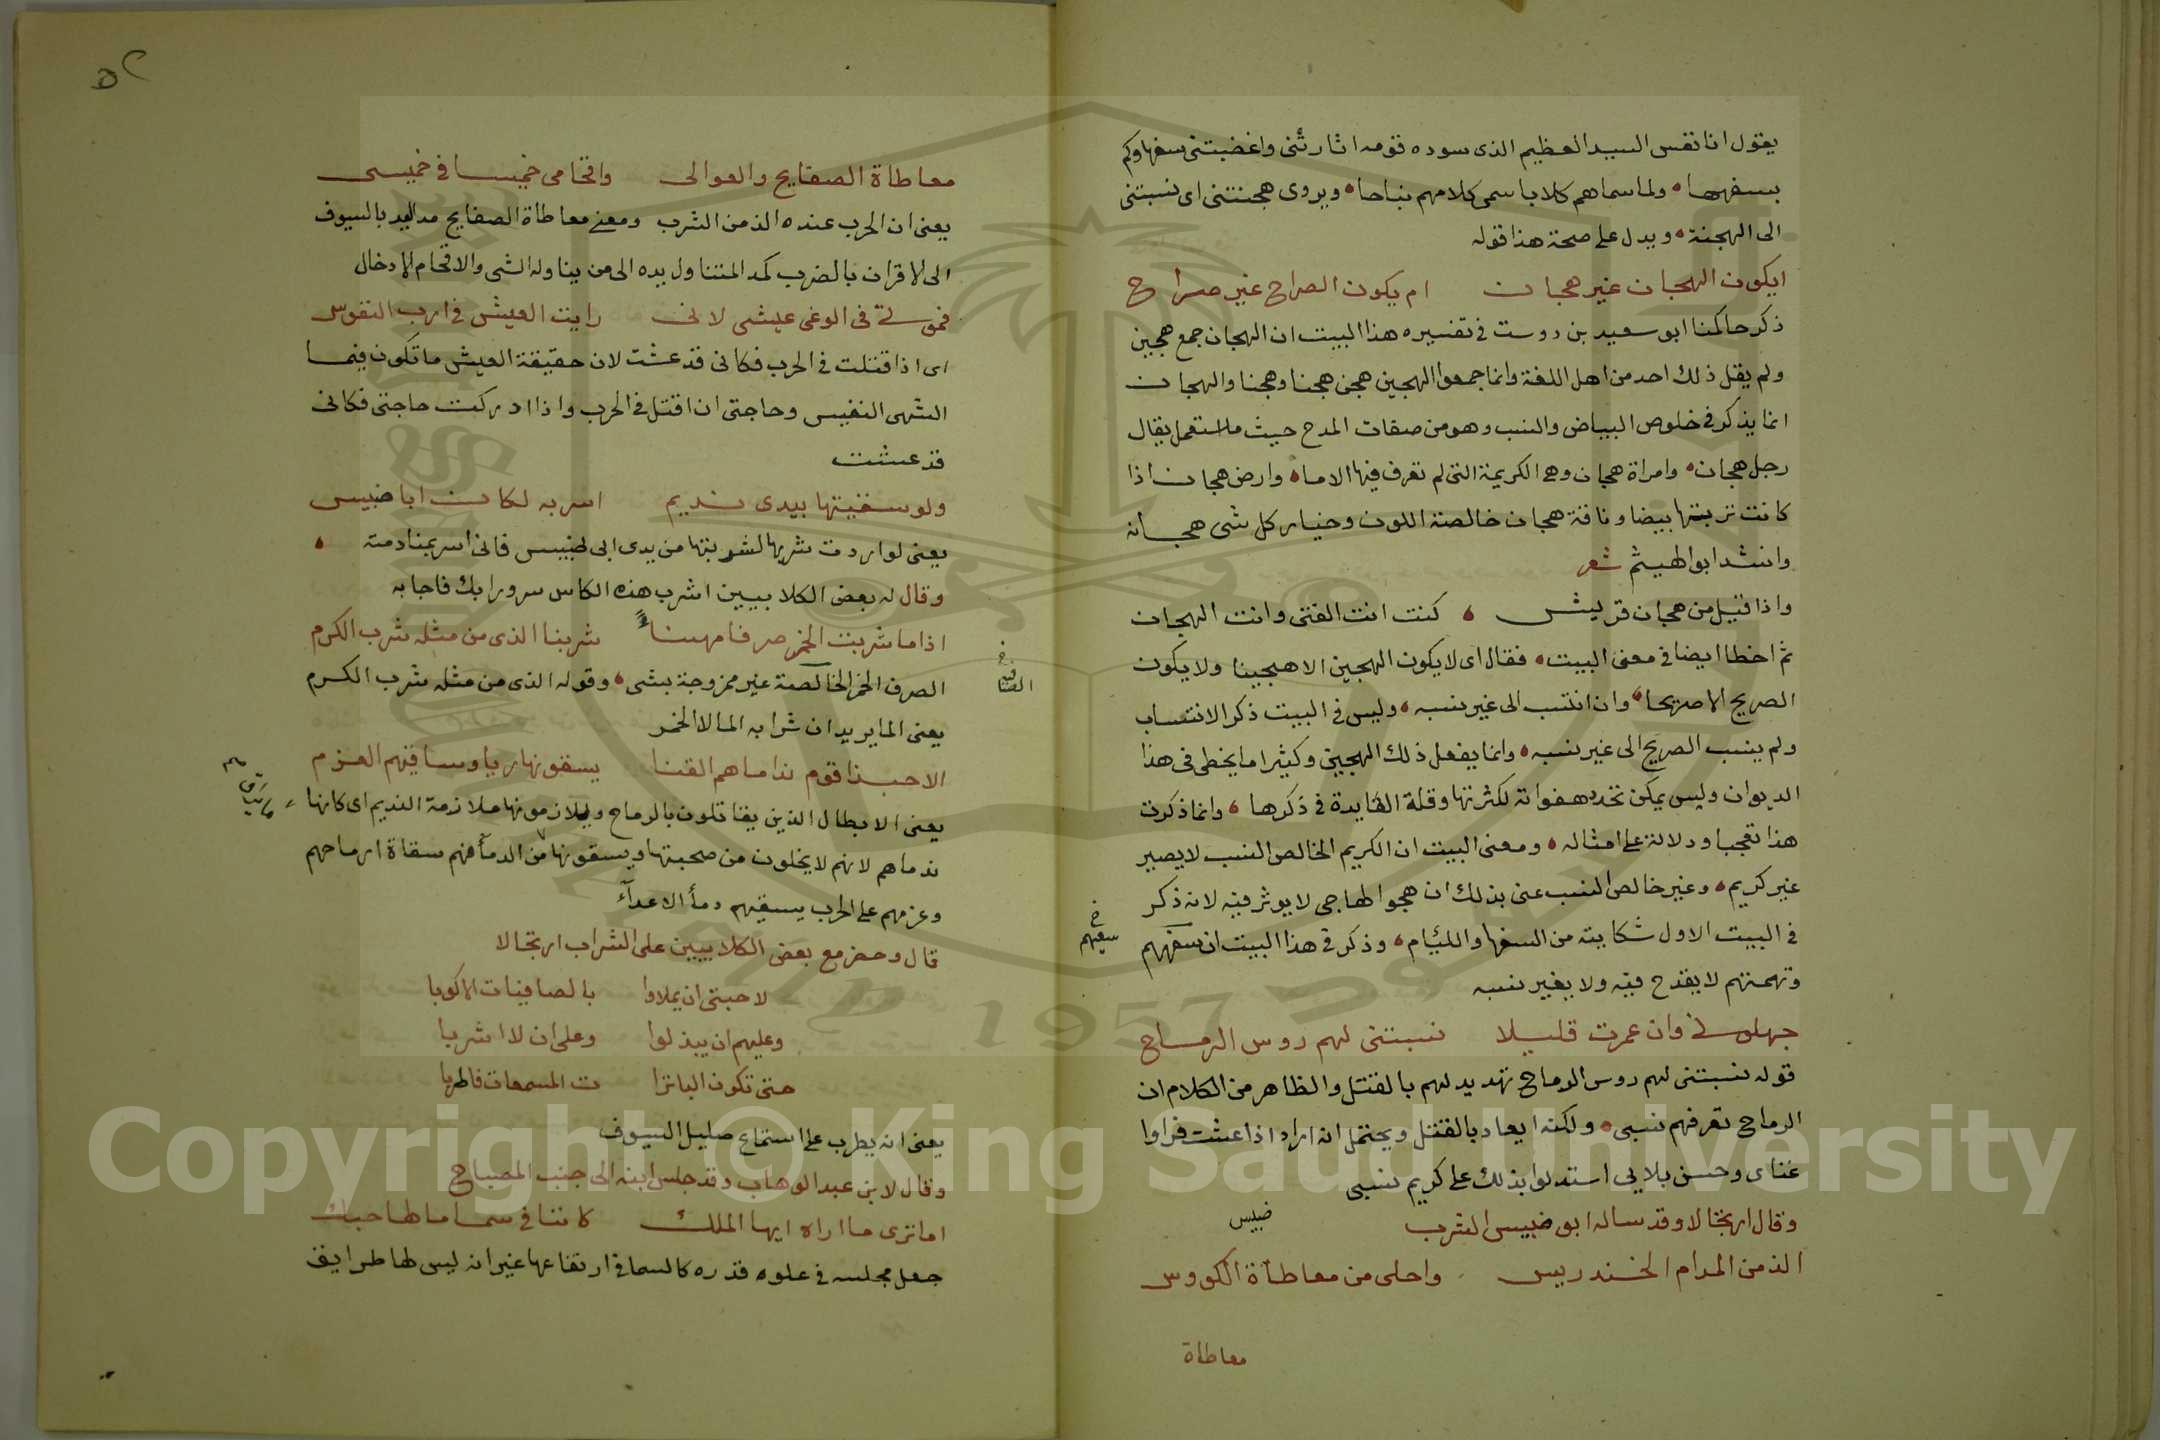 يقول انا نفس السيد العظيم الذى سوده قومه اثارتنى واغضبتنى سفهاوكم
بسفهها ولما سماهم كلابا سمى كلامهم نباحا ويروى هجنتنى اى نسبتنى
الى الهجنة ويدل على صحة هذا قوله
ايكون الهجان غير هجان ام يكون الصراح غير صراح
ذكر حاكمنا ابو سعيد بن دوست فى تفسيره هذا البيت ان الهجان جمع هجين
ولم يقل ذلك احد من اهل اللغة وانما جمعوا الهجين هجن هجنا وهجنا والهجان
انما يذكر فى خلوص البياض والنسب وهو من صفات المدح حيث ما استعمل يقال
رجل هجان وامراة هجان وهى الكريمة التى لم تعرف فيها الاماء وارض هجان اذا
كانت تربتها بيضا وناقة هجان خالصة اللون وخيار كل شى هجانه
وانشد ابو الهيثم شعر
واذا قيل من هجان قريش كنت انت الفتى وانت الهجان
ثم اخطا ايضا فى معنى البيت فقال اى لا يكون الهجين الا هجينا ولا يكون
الصريح الا صريحا وان انتسب الى غير نسبه وليس فى البيت ذكر الانتساب
ولم ينسب الصريح الى غير نسبه وانما يفعل ذلك الهجين وكثيرا ما يخطى فى هذا
الديوان وليس يمكن تعد هفواته لكثرتها وقلة الفايدة فى ذكرها وانما ذكرت
هذا تعجبا ودلالة على امثاله ومعنى البيت ان الكريم الخالص النسب لا يصير
غير كريم وغير خالص النسب عنى بذلك ان هجوا الهاجى لا يوثر فيه لانه ذكر
فى البيت الاول شكايته من السفها والليام وذكر فى هذا البيت ان سفههم
خ سعيهم
وتهمتهم لا يقدح فيه ولا يغير نسبه
جهلونى وان عمرت قليلا نسبتنى لهم روس الرماح
قوله نسبتنى لهم روس الرماح تهديد لهم بالقتل والظاهر من الكلام ان
الرماح تعرفهم نسبى ولكنه ايعاد بالقتل ويحتمل انه اراد اذا عشت فراوا
غناى وحسن بلايى استدلوا بذلك على كريم نسبى
وقال ارتجالا وقد ساله ابو ضبيس الشرب
ضبيس
الذ من المدام الخندريس واحلى من معاطاة الكووس
معاطاة
٥٢
معاطاة الصفايح والعوالى واقحامى خميسا فى خميسى
يعنى ان الحرب عنده الذ من الشرب ومعنى معاطاة الصفايح مد اليد بالسيوف
الى الاقران بالضرب كمد المتناول يده الى من يناوله الشى والاقحام الادخال
فموتى فى الوغى عيشى لانى رايت العيش فى ارب النفوس
اى اذا قتلت فى الحرب فكانى قد عشت لان حقيقة العيش ما تكون فيما
الشهى النفيس وحاجتى ان اقتل فى الحرب واذا ادركت حاجتى فكانى
قد عشت
ولو سقيتها بيدى نديم اسر به لكان ابا ضبيس
يعنى لو اردت شربها لشربتها من يدى ابى ضبيس فانى اسر بمنادمته
وقال له بعض الكلابيين اشرب هذه الكاس سرورا بك فاجابه
اذا ما شربت الخمر صرفا مهنا شربنا الذى من مثله شرب الكرم
الصرف الخمر الخالصة غير ممزوجة بشى وقوله الذى من مثله شرب الكرم
يعنى الما يريد ان شرابه الما لا الخمر
الا حبذا قوم نداماهم القنا يسقونها ريا وساقيهم العزم
يعنى الابطال الذين يقاتلون بالرماح ويلازمونها ملازمة النديم اى كانها
نداماهم لانهم لا يخلون من صحبتها ويسقونها من الدما فهم سقاة ارماحهم
وعزمهم على الحرب يسقيهم دما الاعداء
قال وحضر مع بعض الكلابيين على الشراب ارتجالا
لاحبتى ان يملاوا بالصافيات الاكوبا
وعليهم ان يبذلوا وعلى ان لا اشربا
حتى تكون الباترا ت المسمعات فاطربا
يعنى انه يطرب على استماع صليل السيوف
وقال لابن عبد الوهاب وقد جلس ابنه الى جنب المصباح
اما ترى ما اراه ايها الملك كاننا فى سما ما لها حبك
جعل مجلسه فى علوه قدره كالسما فى ارتفاعها غير انه ليس لها طرايق
Copyright © King Saud University
1957